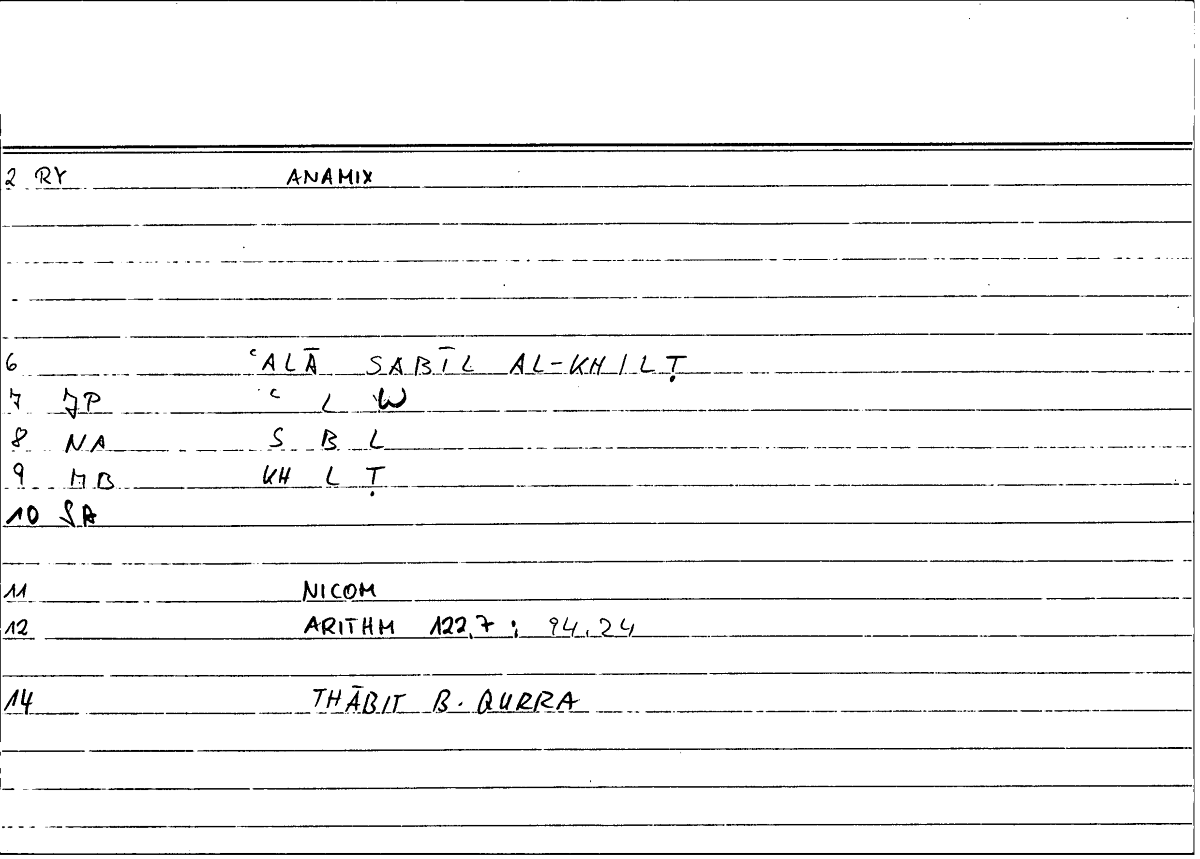 2 RY ANAMIX
6 ʿALĀ SABĪL AL-KHILṬ
7 JP ʿ L W
8 NA S B L
9 MB KH L Ṭ
10 SA
11 NICOM
12 ARITHM 122,7 ; 94,24
14 THĀBIT B. QURRA